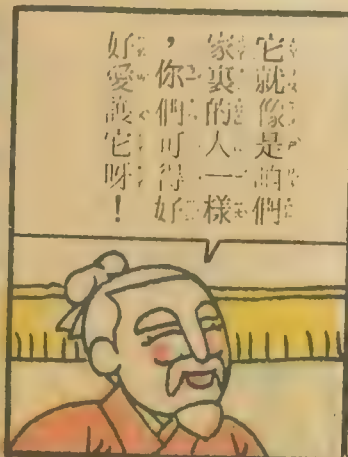 它就像是咱們
家裏的人一樣
，你們可得好
好愛護它呀！